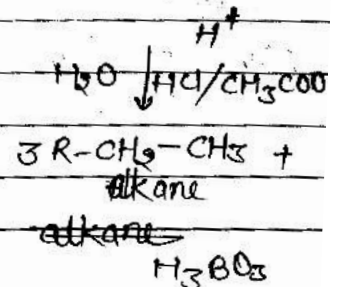 H⁺
H₂O ↓ HCl/CH₃COO
3 R-CH₂-CH₃ +
alkane
alkane
H₃BO₃